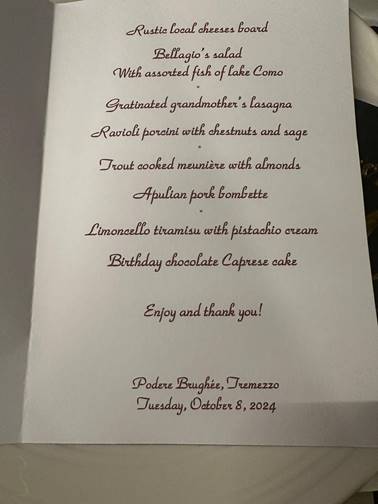 Rustic local cheeses board
Bellagio's salad
With assorted fish of lake Como
*
Gratinated grandmother's lasagna
Ravioli porcini with chestnuts and sage
*
Trout cooked meunière with almonds
Apulian pork bombette
*
Limoncello tiramisu with pistachio cream
Birthday chocolate Caprese cake
Enjoy and thank you!
Podere Brughée, Tremezzo
Tuesday, October 8, 2024